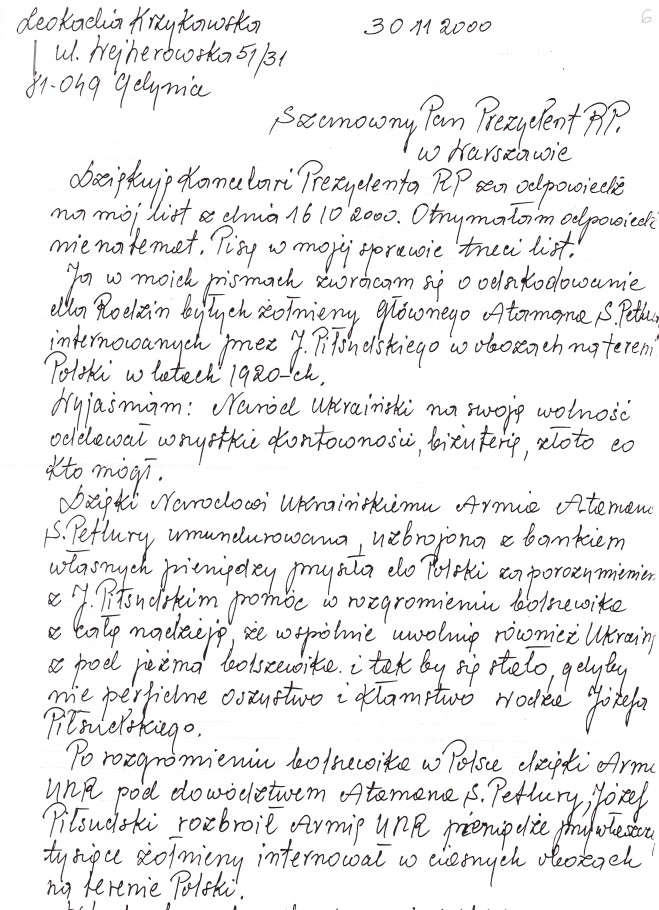 Leokadia Krzykawska 30 11 2000 6
ul. Wejherowska 51/31
81-049 Gdynia
Szanowny Pan Prezydent RP.
w Warszawie
Dziękuję Kancelari Prezydenta RP za odpowiedź
na mój list z dnia 16 10 2000. Otrzymałam odpowiedź
nie na temat. Piszę w mojej sprawie trzeci list.
Ja w moich pismach zwracam się o odszkodowanie
dla Rodzin byłych żołnierzy Głównego Atamana S. Petlur
internowanych przez J. Piłsudskiego w obozach na tereni
Polski w latach 1920-ch.
Wyjaśniam: Naród Ukraiński na swoję wolność
oddawał wszystkie kosztowności, biżuterię, złoto co
kto mógł.
Dzięki Narodowi Ukraińskiemu Armia Atamana
S. Petlury umundurowana, uzbrojona z bankiem
własnych pieniędzy przyszła do Polski za porozumieniem
z J. Piłsudskim pomóc w rozgromieniu bolszewika
z całą nadzieją, że wspólnie uwolnią również Ukrainę
z pod jażma bolszewika. i tak by się stało, gdyby
nie perfidne oszustwo i kłamstwo wodza Józefa
Piłsudskiego.
Po rozgromieniu bolszewika w Polsce dzięki Armi
UNR pod dowództwem Atamana S. Petlury, Józef
Piłsudski rozbroił Armię UNR pieniądze przywłaszczy
tysiące żołnierzy internował w ciasnych obozach
na terenie Polski.